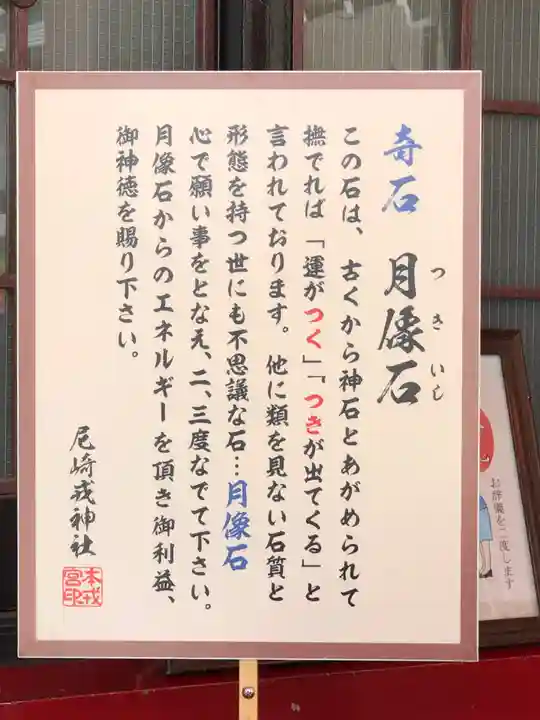 奇石 月像石
つきいし
この石は、古くから神石とあがめられて
撫でれば「運がつく」「つきが出てくる」と
言われております。他に類を見ない石質と
形態を持つ世にも不思議な石…月像石
心で願い事をとなえ、二、三度なでて下さい。
月像石からのエネルギーを頂き御利益、
御神徳を賜り下さい。
尼崎戎神社
本戎
宮印
お辞儀を二度します